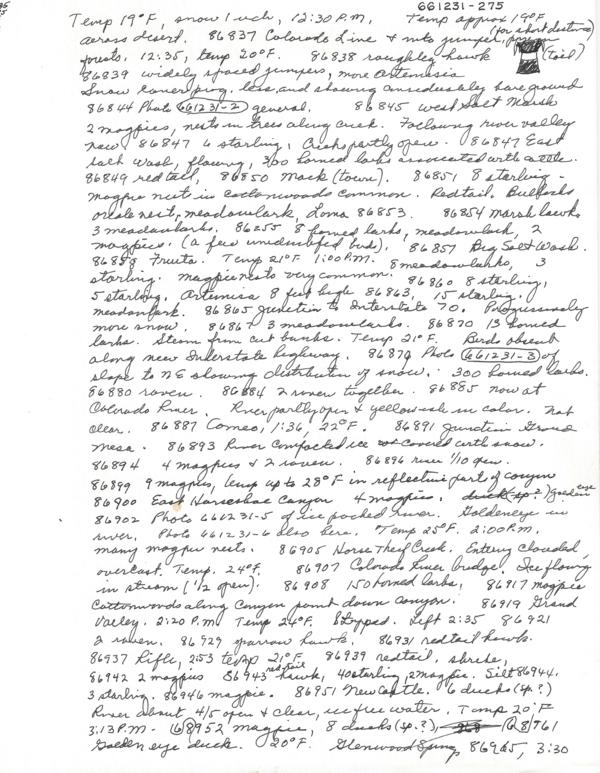 661231-275
Temp 19°F, snow 1 inch, 12:30 P.M. Temp approx 19°F
across desert. 86837 Colorado Line & into juniper, pinyon (for short distance)
forests. 12:35, temp 20°F. 86838 roughleg hawk (tail)
86839 widely spaced junipers, more Artemisia
Snow cover prog. less and showing considerably bare ground
86844 Photo 661231-2 general. 86845 West Salt Marsh
2 magpies, nests in trees along creek. Following river valley
now 86847 6 starling. Creek partly open. 86847 East
Salt Wash, flowing, 300 horned larks associated with cattle.
86849 redtail, 86850 Mack (town). 86851 8 starling -
magpie nest in cottonwoods common. Redtail. Bullocks
oriole nest, meadowlark, Loma 86853. 86854 marsh hawk
3 meadowlarks. 86855 8 horned larks, meadowlark, 2
magpies. (a few unidentified birds). 86857 Big Salt Wash.
8685 Fruita. Temp 21°F 1:00 P.M. 8 meadowlarks, 3
starling. magpie nests very common. 86860 8 starling,
5 starling. Artemisia 8 feet high 86863, 15 starling.
meadowlark. 86865 Junction to Interstate 70. Progressively
more snow. 86867 3 meadowlarks. 86870 13 horned
larks. Steam from cut banks. Temp 21°F. Birds absent
along new Interstate highway. 86879 Photo 661231-3 of
slope to NE showing distribution of snow. 300 horned larks.
86880 raven. 86884 2 raven together. 86885 now at
Colorado River. River partly open & yellowish in color. Not
clear. 86887 Cameo, 1:36, 22°F. 86891 Junction Grand
Mesa. 86893 River compacted ice covered with snow.
86894 4 magpies & 2 raven. 86896 river 1/10 open.
86899 9 magpies, temp up to 28°F in reflective part of canyon
86900 East Horseshoe Canyon 4 magpies. duck (sp?) Goldeneye
86902 Photo 661231-5 of ice packed river. Goldeneye in
river. Photo 661231-6 also here. Temp 25°F. 2:00 P.M.
many magpie nests. 86905 Horse Thief Creek. Entering clouded,
overcast. Temp. 24°F. 86907 Colorado River bridge. Ice flowing
in stream (1/2 open). 86908 150 horned larks, 86917 magpie
Cottonwoods along Canyon point down canyon. 86919 Grand
Valley. 2:20 P.M. Temp 24°F. Stopped. Left 2:35 86921
2 raven. 86929 sparrow hawk. 86931 redtail hawk.
86937 Rifle, 2:53 temp 21°F 86939 redtail, shrike,
86942 2 magpies 86943 redtail hawk, 40 starling, 2 magpie. Silt 86944.
3 starling. 86946 magpie. 86951 New Castle. 6 ducks (sp.?)
River about 4/5 open & clear, ice free water. Temp 20°F
3:13 P.M. 68952 magpie, 8 ducks (sp.?), 68761
Goldeneye duck. 20°F. Glenwood Springs 86965, 3:30